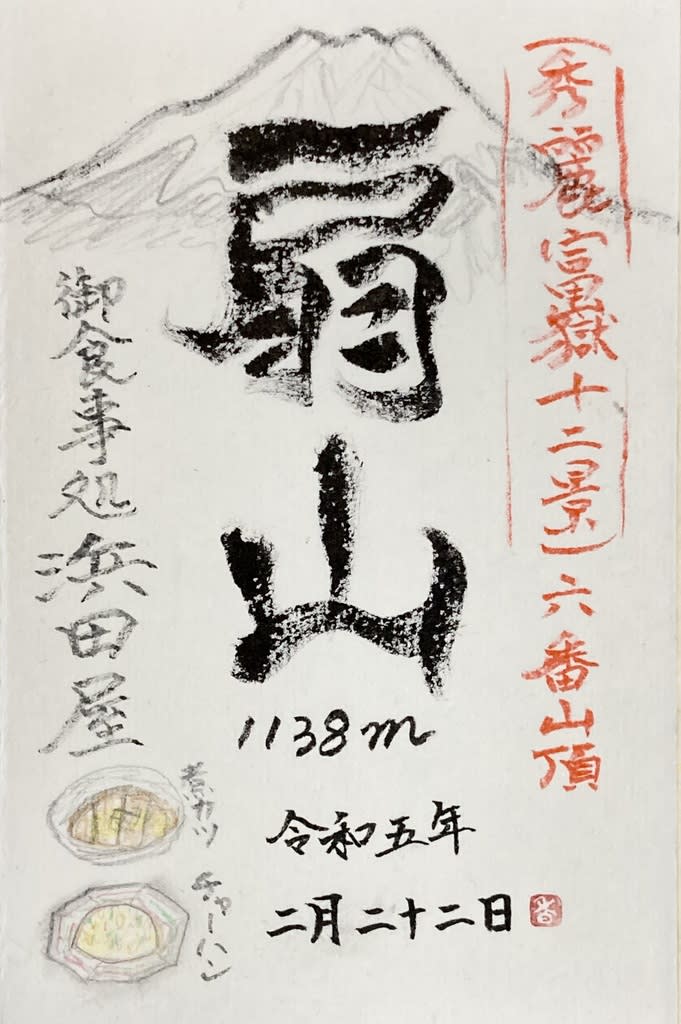 秀麗富嶽十二景 六番山頂
扇山
1138m
令和五年
二月二十二日
香
御食事処 浜田屋
煮カツ
チャーハン